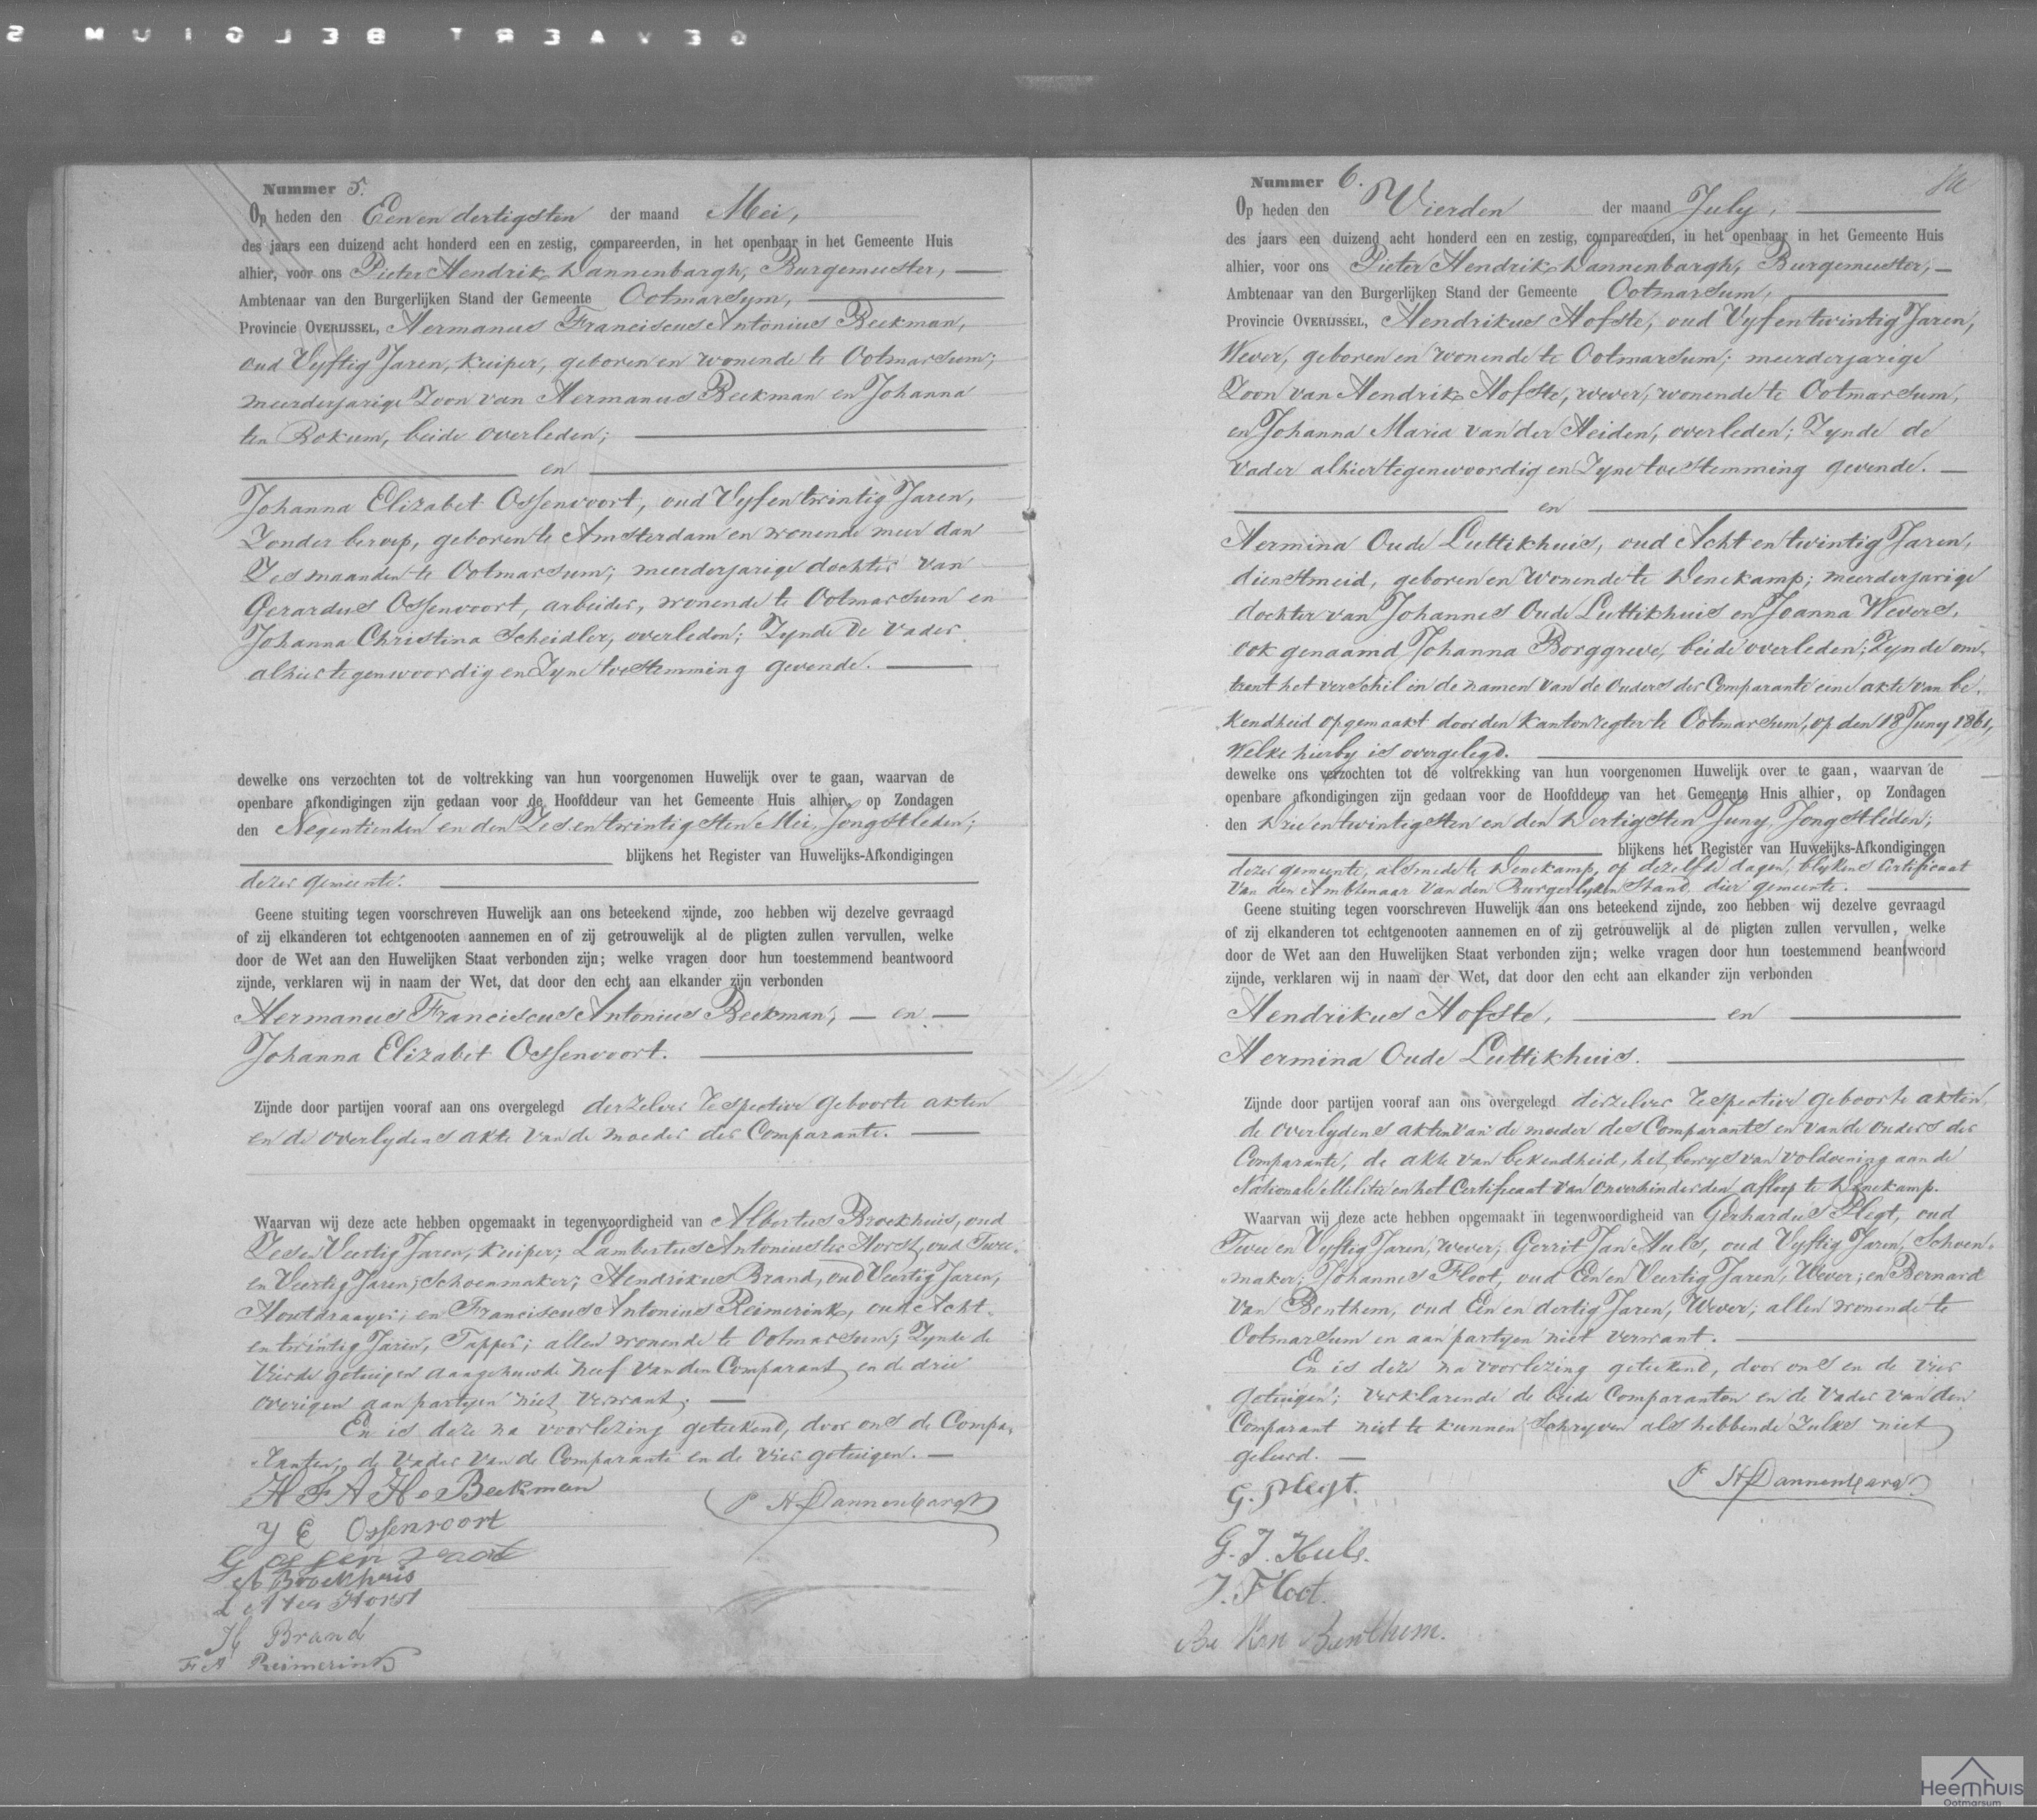 GEVAERT BELGIUM S
Nummer 5.
Op heden den Een en dertigsten der maand Mei,
des jaars een duizend acht honderd een en zestig, compareerden, in het openbaar in het Gemeente Huis
alhier, voor ons Pieter Hendrik Dannenbargh, Burgemeester,
Ambtenaar van den Burgerlijken Stand der Gemeente Ootmarsum,
Provincie OVERIJSSEL, Hermanus Franciscus Antonius Beekman,
oud Vyftig Jaren, kuiper, geboren en wonende te Ootmarsum;
meerderjarige Zoon van Hermanus Beekman en Johanna
ten Bokum, beide overleden;
en
Johanna Elizabet Ossenvoort, oud Vyf en twintig Jaren,
Zonder beroep, geboren te Amsterdam en wonende meer dan
Zes maanden te Ootmarsum; meerderjarige dochter van
Gerardus Ossenvoort, arbeider, wonende te Ootmarsum en
Johanna Christina Scheidler, overleden; Zynde de vader
alhier tegenwoordig en Zyne toestemming gevende.
dewelke ons verzochten tot de voltrekking van hun voorgenomen Huwelijk over te gaan, waarvan de
openbare afkondigingen zijn gedaan voor de Hoofddeur van het Gemeente Huis alhier, op Zondagen
den Negentienden en den Zes en twintigsten Mei, Jongstleden;
blijkens het Register van Huwelijks-Afkondigingen
dezer gemeente.
Geene stuiting tegen voorschreven Huwelijk aan ons beteekend zijnde, zoo hebben wij dezelve gevraagd
of zij elkanderen tot echtgenooten aannemen en of zij getrouwelijk al de pligten zullen vervullen, welke
door de Wet aan den Huwelijken Staat verbonden zijn; welke vragen door hun toestemmend beantwoord
zijnde, verklaren wij in naam der Wet, dat door den echt aan elkander zijn verbonden
Hermanus Franciscus Antonius Beekman, en
Johanna Elizabet Ossenvoort.
Zijnde door partijen vooraf aan ons overgelegd derzelver respective geboorte akten
en de overlydens akte van de moeder der Comparante.
Waarvan wij deze acte hebben opgemaakt in tegenwoordigheid van Albertus Broekhuis, oud
Zes en Veertig Jaren, kuiper; Lambertus Antonius ter Horst, oud Twee
en Veertig Jaren, Schoenmaker; Hendrikus Brand, oud Veertig Jaren,
Houtdraayer; en Franciscus Antonius Reimerink, oud Acht
en twintig Jaren, Tapper; allen wonende te Ootmarsum; Zynde de
Vierde getuigen aangehuwde neef van den Comparant en de drie
overigen aan partyen niet verwant.
En is deze na voorlezing geteekend, door ons de Compa-
ranten, de vader van de Comparante en de vier getuigen.
H F A H Beekman
P H Dannenbargh
J E Ossenvoort
G ossen voort
A Broekhuis
L A ter Horst
H Brand
F A Reimerink
Nummer 6.
Op heden den Vierden der maand July,
des jaars een duizend acht honderd een en zestig, compareerden, in het openbaar in het Gemeente Huis
alhier, voor ons Pieter Hendrik Dannenbargh, Burgemeester,
Ambtenaar van den Burgerlijken Stand der Gemeente Ootmarsum,
Provincie OVERIJSSEL, Hendrikus Hofste, oud Vyf en twintig Jaren,
Wever, geboren en wonende te Ootmarsum; meerderjarige
Zoon van Hendrik Hofste, wever, wonende te Ootmarsum,
en Johanna Maria van der Heiden, overleden; Zynde de
Vader alhier tegenwoordig en Zyne toestemming gevende.
en
Hermina Oude Luttikhuis, oud Acht en twintig Jaren,
dienstmeid, geboren en wonende te Denekamp; meerderjarige
dochter van Johannes Oude Luttikhuis en Joanna Wevers,
ook genaamd Johanna Borggreve, beide overleden; Zynde om-
trent het verschil in de namen van de ouders der Comparante eene akte van be-
kendheid opgemaakt door den kantonregter te Ootmarsum, op den 18 Juny 1861,
welke hierby is overgelegd.
dewelke ons verzochten tot de voltrekking van hun voorgenomen Huwelijk over te gaan, waarvan de
openbare afkondigingen zijn gedaan voor de Hoofddeur van het Gemeente Hnis alhier, op Zondagen
den Drie en twintigsten en den Dertigsten Juny, Jongstleden;
blijkens het Register van Huwelijks-Afkondigingen
dezer gemeente, alsmede te Denekamp, op dezelfde dagen, blykens Certificaat
van den Ambtenaar van den Burgerlyken Stand dier gemeente.
Geene stuiting tegen voorschreven Huwelijk aan ons beteekend zijnde, zoo hebben wij dezelve gevraagd
of zij elkanderen tot echtgenooten aannemen en of zij getrouwelijk al de pligten zullen vervullen, welke
door de Wet aan den Huwelijken Staat verbonden zijn; welke vragen door hun toestemmend beantwoord
zijnde, verklaren wij in naam der Wet, dat door den echt aan elkander zijn verbonden
Hendrikus Hofste, en
Hermina Oude Luttikhuis.
Zijnde door partijen vooraf aan ons overgelegd derzelver respective geboorte akten,
de overlydens akten van de moeder des Comparants en van de ouders der
Comparante, de akte van bekendheid, het bewys van voldoening aan de
Nationale Militie en het Certificaat van onverhinderden afloop te Denekamp.
Waarvan wij deze acte hebben opgemaakt in tegenwoordigheid van Gerhardus Plegt, oud
Twee en Vyftig Jaren, wever; Gerrit Jan Huls, oud Vyftig Jaren, Schoen-
maker; Johannes Floot, oud Een en Veertig Jaren, Wever; en Bernard
van Benthem, oud Een en dertig Jaren, Wever; allen wonende te
Ootmarsum en aan partyen niet verwant.
En is deze na voorlezing geteekend, door ons en de vier
getuigen; verklarende de beide Comparanten en de vader van den
Comparant niet te kunnen Schryven als hebbende Zulks niet
geleerd.
G. Plegt.
P H Dannenbargh
G. J. Huls.
J. Floot.
Benthem.
Heemhuis
Ootmarsum